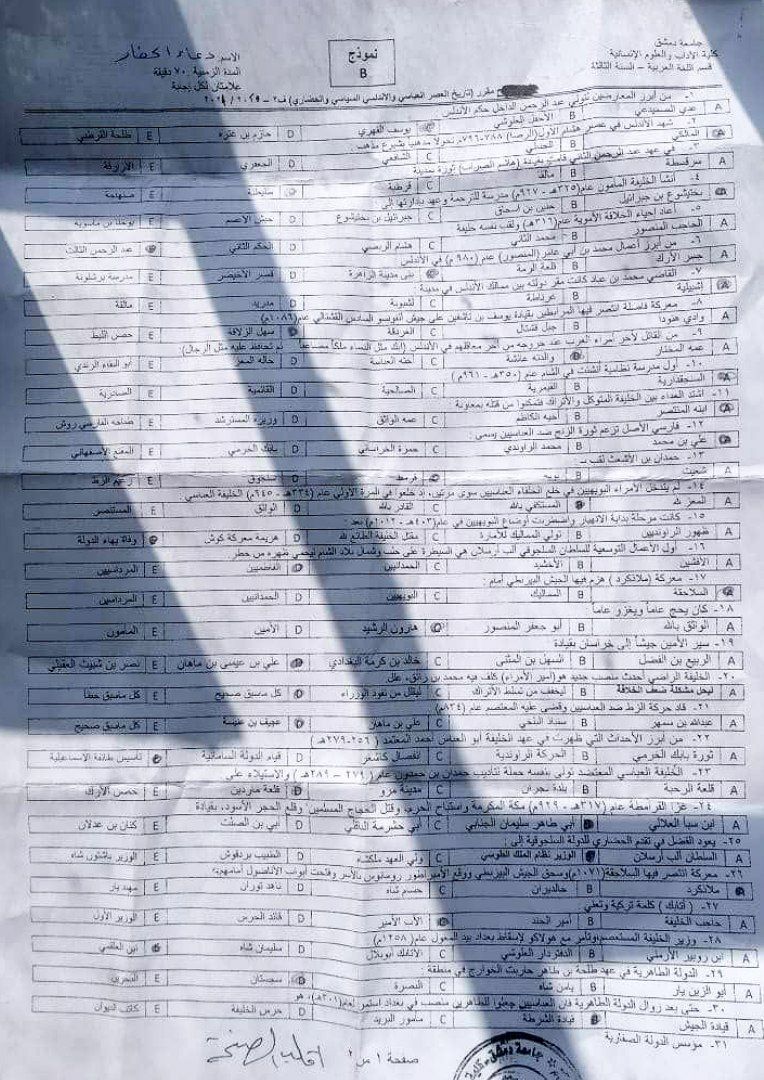 جامعة دمشق
كلية الآداب والعلوم الإنسانية
قسم اللغة العربية – السنة الثالثة
نموذج
B
الاسم
المدة الزمنية: ٧٠ دقيقة
علامتان لكل إجابة
مقرر (تاريخ العصر العباسي والأندلسي السياسي والحضاري)
١- من أبرز المعارضين لتولي عبد الرحمن الداخل حكم الأندلس
A B يوسف الفهري D E طلحة القرطبي
٢- شهد الأندلس في عصر هشام الأول
A المالكي B الحنبلي C الشافعي D الجعفري E الأزارقة
٣- في عهد عبد الرحمن الثاني قامت بمدينة
A سرقسطة B مالقا C قرطبة D طليطلة E صنهاجة
٤- أنشأ الخليفة المأمون عام مدرسة للترجمة وعهد بإدارتها إلى
A بختيشوع بن جبرائيل B حنين بن اسحاق C جبرائيل بن بختيشوع D حبش الاعسم E يوحنا بن ماسويه
٥- أعاد إحياء الخلافة الأموية عام (٣١٦هـ) ولقب نفسه خليفة
A الحاجب المنصور B محمد الثاني C هشام الربضي D الحكم الثاني E عبد الرحمن الثالث
٦- من أبرز أعمال محمد بن أبي عامر (المنصور) عام (٩٨٠م) في الأندلس
A جسر الأرك B قلعة الرمة C بنى مدينة الزاهرة D قصر الأخيضر E مدرسة برشلونة
٧- القاضي محمد بن عباد كانت مقر دولته بين ممالك الأندلس في مدينة
A إشبيلية B غرناطة C لشبونة D مدريد E مالقة
٨- معركة فاصلة انتصر فيها المرابطين بقيادة يوسف بن تاشفين على جيش الفونسو السادس القشتالي عام (١٠٨٦م)
A B جبل قشتال C العريقة D سهل الزلاقة E حصن الليط
٩- من القائل لآخر أمراء العرب عند خروجه من آخر معاقلهم في الأندلس (إبك مثل النساء ملكاً مضاعاً لم تحافظ عليه مثل الرجال)
A عمه المختار B والدته عائشة C D E أبو البقاء الرندي
١٠- أول مدرسة نظامية أنشئت في الشام عام (٣٥٠هـ - ٩٦١م)
A B القيمرية C الصالحية D القائمية E الصادرية
١١- اشتد العداء بين الخليفة المتوكل والأتراك فتمكنوا من قتله بمعاونة
A ابنه المنتصر B أخيه الكاظم C عمه الواثق D وزيره المسترشد E
١٢- فارسي الأصل تزعم ثورة الزنج ضد العباسيين يسمى:
A علي بن محمد B محمد الراوندي C حمزة الخراساني D بابك الخرمي E المقنع الأصفهاني
١٣- حمدان بن الأشعث لقب بـ
A شعيث B بويه C قرمط D سلجوق E زعيم الزط
١٤- لم يتدخل الأمراء البويهيين في خلع الخلفاء العباسيين سوى مرتين، إذ خلعوا في المرة الأولى عام (٣٣٤هـ - ٩٤٥م) الخليفة العباسي
A المعز لله B المستكفي بالله C القادر بالله D الواثق E المستنصر
١٥- كانت مرحلة بداية الانهيار واضطربت أوضاع البويهيين في عام (٤٠٣هـ - ١٠١٢م) بعد:
A ظهور الراونديين B تولي المماليك للأمارة C مقتل الخليفة الطائع لله D هزيمة معركة كوش E وفاة بهاء الدولة
١٦- أول الأعمال التوسعية للسلطان السلجوقي ألب أرسلان هي السيطرة على حلب وشمال بلاد الشام ليحمي ظهره من خطر
A الأفشين B الأخشيد C الحمدانيين D الفاطميين E المرداسيين
١٧- معركة (ملاذكرد) هزم فيها الجيش البيزنطي أمام:
A السلاجقة B المماليك C البويهيين D الحمدانيين E المرداسيين
١٨- كان يحج عاماً ويغزو عاماً
A الواثق بالله B أبو جعفر المنصور C هارون الرشيد D الأمين E المأمون
١٩- سير الأمين جيشاً إلى خراسان بقيادة
A الربيع بن الفضل B السهل بن المثنى C خالد بن كرمة البغدادي D علي بن عيسى بن ماهان E نصر بن شبيث العقيلي
٢٠- الخليفة الراضي أحدث منصب جديد هو (أمير الأمراء) كلف فيه محمد بن رائق، علل
A ليحل مشكلة ضعف الخلافة B ليخفف من تسلط الأتراك C ليقلل من نفوذ الوزراء D كل ماسبق صحيح E كل ماسبق خطأ
٢١- قاد حركة الزط ضد العباسيين وقضى عليه المعتصم عام (٨٣٤م)
A عبدالله بن سمهر B سنباذ البلخي C علي بن ماهان D عجيف بن عنبسة E كل ماسبق صحيح
٢٢- من أبرز الأحداث التي ظهرت في عهد الخليفة أبو العباس أحمد المعتمد (٢٥٦-٢٧٩هـ)
A ثورة بابك الخرمي B الحركة الراوندية C انفصال كاشغر D قيام الدولة السامانية E تأسيس طائفة الاسماعيلية
٢٣- الخليفة العباسي المعتضد تولى بنفسه حملة لتأديب حمدان بن حمدون عام (٢٧٩ – ٢٨٩هـ) والاستيلاء على
A قلعة الرحبة B بلدة نجران C مدينة مرو D قلعة ماردين E حصن الأرك
٢٤- غزا القرامطة عام (٣١٧هـ - ٩٢٩م) مكة المكرمة واستباح الحرم، وقتل الحجاج المسلمين، وقلع الحجر الأسود، بقيادة
A ابن سبا العلالي B أبي طاهر سليمان الجنابي C D أبي بن الصلت E كنان بن عدلان
٢٥- يعود الفضل في تقدم الحضاري للدولة السلجوقية إلى:
A السلطان ألب أرسلان B الوزير نظام الملك الطوسي C ولي العهد ملكشاه D الطبيب بردقوش E الوزير باشتون شاه
٢٦- معركة انتصر فيها السلاجقة (١٠٧١م) وسحق الجيش البيزنطي ووقع الأمبراطور رومانوس بالأسر وفتحت أبواب الأناضول أمامهم:
A ملاذكرد B خالديران C حسام شاه D ناهد توران E مهد بار
٢٧- (أتابك) كلمة تركية وتعني
A حاجب الخليفة B أمير الجند C الأب الأمير D قائد الحرس E الوزير الأول
٢٨- وزير الخليفة المستعصم وتآمر مع هولاكو لإسقاط بغداد بيد المغول عام (١٢٥٨م)
A ابن روبير الأرمني B الدفتردار الطوشي C الأتابك أيوبلال D سليمان شاه E ابن العلقمي
٢٩- الدولة الطاهرية في عهد طلحة بن طاهر حاربت الخوارج في منطقة:
A أبو الزين يار B يامن شاه C البصرة D سجستان E البحرين
٣٠- حتى بعد زوال الدولة الطاهرية فإن العباسيين جعلوا للطاهريين منصب في بغداد استمر لعام (٣٠١هـ)، هو
A قيادة الجيش B قيادة الشرطة C مأمور البريد D حرس الخليفة E كاتب الديوان
٣١- مؤسس الدولة الصفارية
صفحة ١ من ٢
اقلب الصفحة
جامعة دمشق